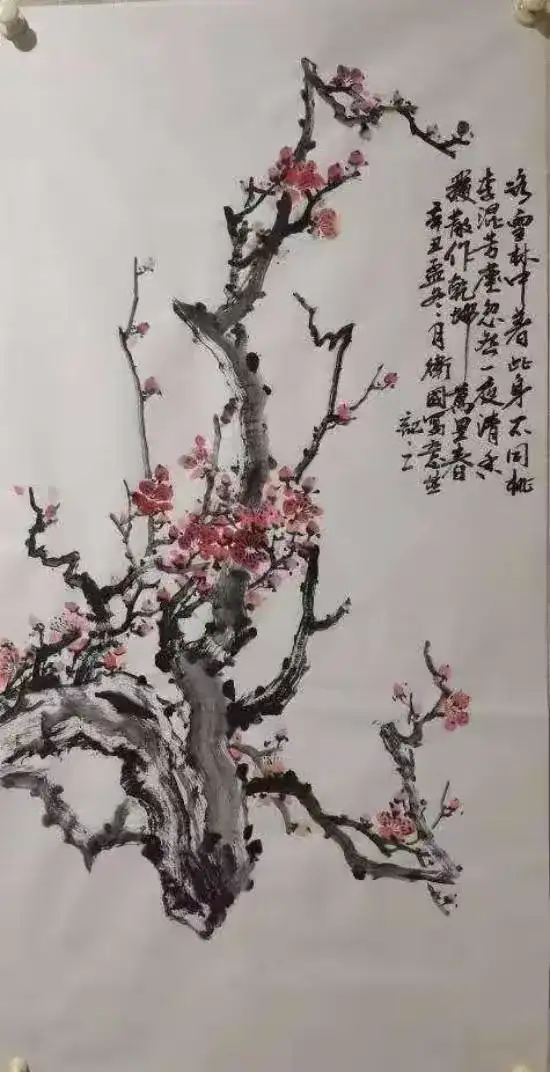 冰雪林中著此身不同桃
李混芳塵忽然一夜清香
發散作乾坤萬里春
辛丑孟冬之月衛國寫意並
記之